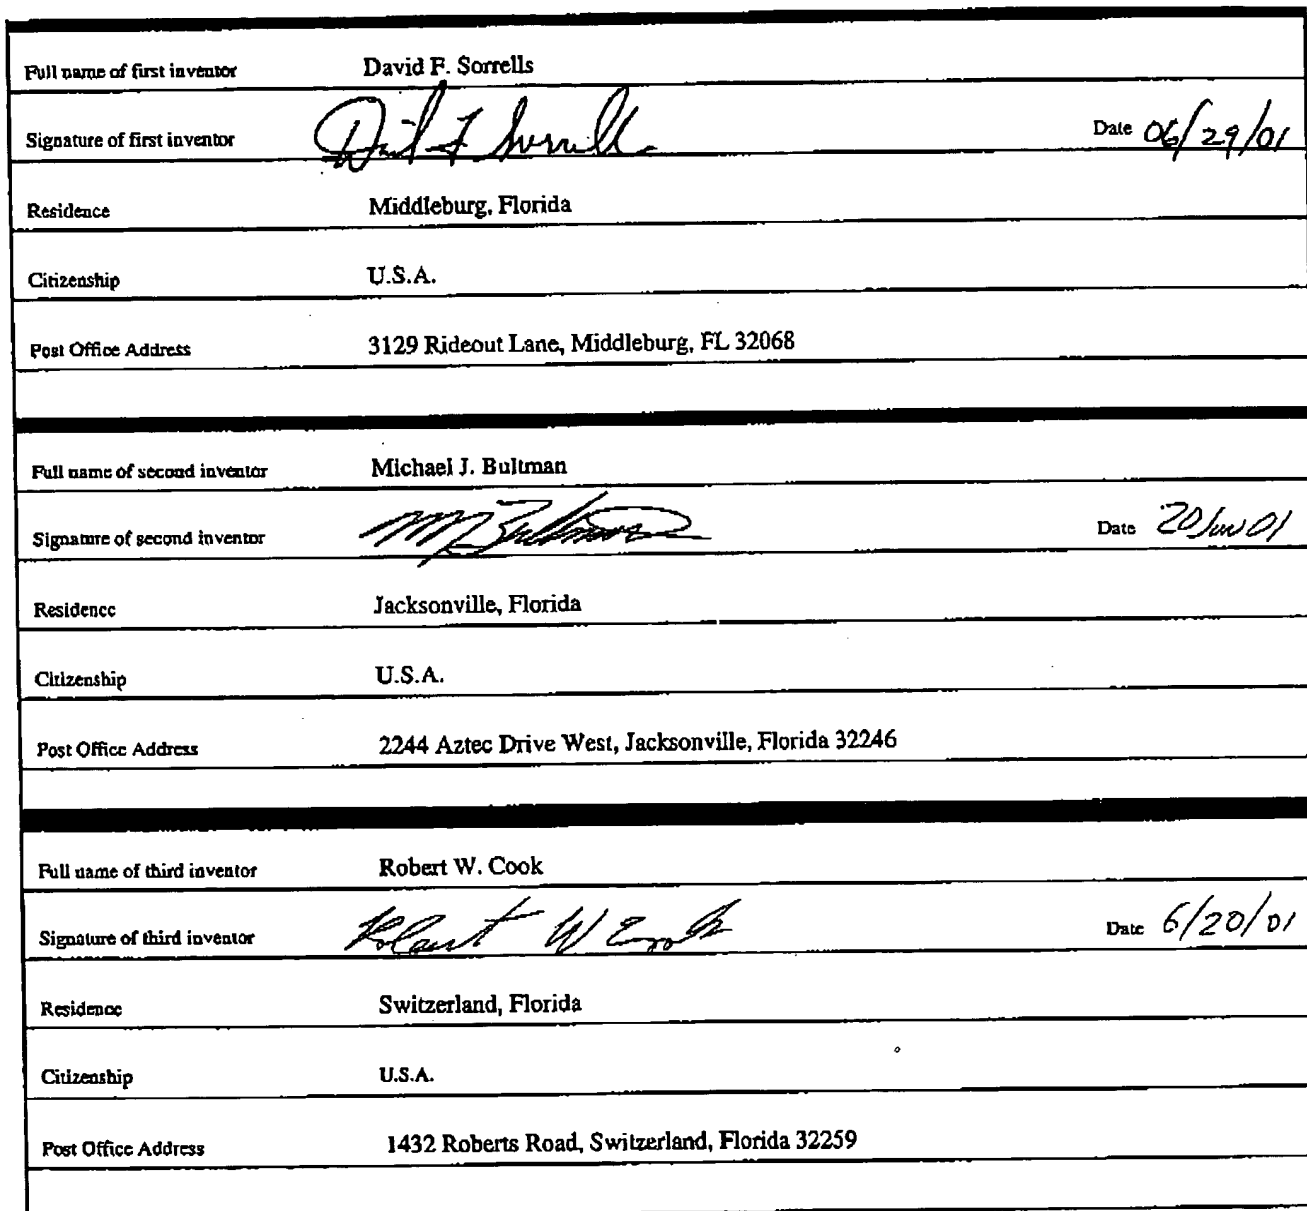 Full name of first inventor David F. Sorrells
Signature of first inventor David F Sorrells Date 06/29/01
Residence Middleburg, Florida
Citizenship U.S.A.
Post Office Address 3129 Rideout Lane, Middleburg, FL 32068
Full name of second inventor Michael J. Bultman
Signature of second inventor MJ Bultman Date 20 Jun 01
Residence Jacksonville, Florida
Citizenship U.S.A.
Post Office Address 2244 Aztec Drive West, Jacksonville, Florida 32246
Full name of third inventor Robert W. Cook
Signature of third inventor Robert W Cook Date 6/20/01
Residence Switzerland, Florida
Citizenship U.S.A.
Post Office Address 1432 Roberts Road, Switzerland, Florida 32259